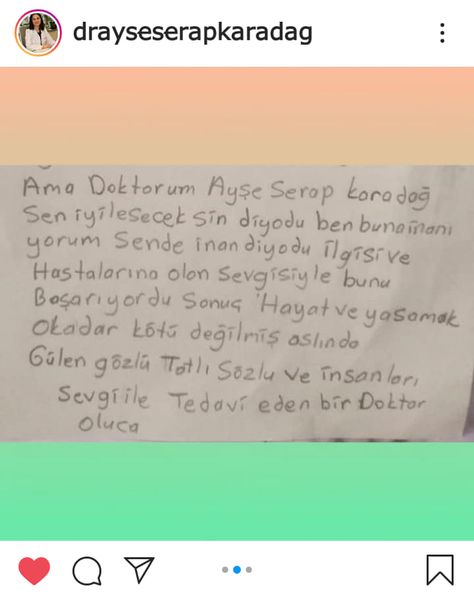 drayseserapkaradag
Ama Doktorum Ayşe Serap Karadağ
Sen iyileşecek sin diyodu ben buna inanı
yorum Sende inan diyodu İlgisi ve
Hastalarına olan Sevgisiyle bunu
Başarıyordu Sonuç 'Hayat ve yaşamak
Okadar kötü değilmiş aslında
Gülen gözlü Tatlı Sözlu ve insanları,
Sevgi ile Tedavi eden bir Doktor
oluca